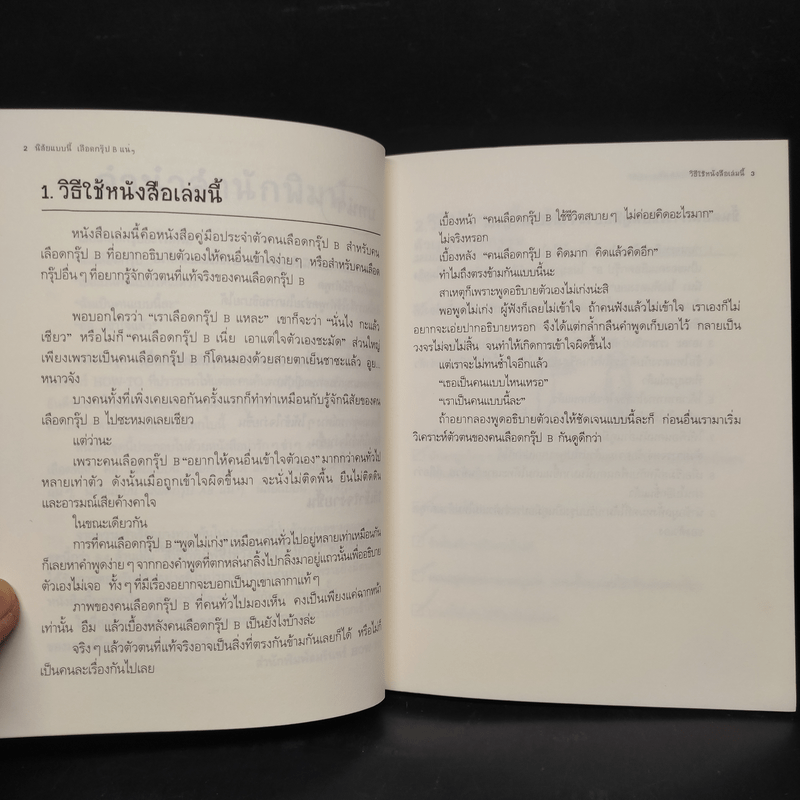 2 นิสัยแบบนี้ เลือดกรุ๊ป B แน่ๆ
1. วิธีใช้หนังสือเล่มนี้
หนังสือเล่มนี้คือหนังสือคู่มือประจำตัวคนเลือดกรุ๊ป B สำหรับคน
เลือดกรุ๊ป B ที่อยากอธิบายตัวเองให้คนอื่นเข้าใจง่ายๆ หรือสำหรับคนเลือด
กรุ๊ปอื่นๆ ที่อยากรู้จักตัวตนที่แท้จริงของคนเลือดกรุ๊ป B
พอบอกใครว่า “เราเลือดกรุ๊ป B แหละ” เขาก็จะว่า “นั่นไง กะแล้ว
เชียว” หรือไม่ก็ “คนเลือดกรุ๊ป B เนี่ย เอาแต่ใจตัวเองชะมัด” ส่วนใหญ่
เพียงเพราะเป็นคนเลือดกรุ๊ป B ก็โดนมองด้วยสายตาเย็นชาซะแล้ว อูย...
หนาวจัง
บางคนทั้งที่เพิ่งเคยเจอกันครั้งแรกก็ทำท่าเหมือนกับรู้จักนิสัยของคน
เลือดกรุ๊ป B ไปซะหมดเลยเชียว
แต่ว่านะ
เพราะคนเลือดกรุ๊ป B “อยากให้คนอื่นเข้าใจตัวเอง” มากกว่าคนทั่วไป
หลายเท่าตัว ดังนั้นเมื่อถูกเข้าใจผิดขึ้นมา จะนั่งไม่ติดพื้น ยืนไม่ติดดิน
และอารมณ์เสียค้างคาใจ
ในขณะเดียวกัน
การที่คนเลือดกรุ๊ป B “พูดไม่เก่ง” เหมือนคนทั่วไปอยู่หลายเท่าเหมือนกัน
ก็เลยหาคำพูดง่ายๆ จากกองคำพูดที่ตกหล่นกลิ้งไปกลิ้งมาอยู่แถวนั้นเพื่ออธิบาย
ตัวเองไม่เจอ ทั้งๆ ที่มีเรื่องอยากจะบอกเป็นภูเขาเลากาแท้ๆ
ภาพของคนเลือดกรุ๊ป B ที่คนทั่วไปมองเห็น คงเป็นเพียงแค่ฉากหน้า
เท่านั้น อืม แล้วเบื้องหลังคนเลือดกรุ๊ป B เป็นยังไงบ้างล่ะ
จริงๆ แล้วตัวตนที่แท้จริงอาจเป็นสิ่งที่ตรงกันข้ามกันเลยก็ได้ หรือไม่ก็
เป็นคนละเรื่องกันไปเลย
วิธีใช้หนังสือเล่มนี้ 3
เบื้องหน้า “คนเลือดกรุ๊ป B ใช้ชีวิตสบายๆ ไม่ค่อยคิดอะไรมาก”
ไม่จริงหรอก
เบื้องหลัง “คนเลือดกรุ๊ป B คิดมาก คิดแล้วคิดอีก”
ทำไมถึงตรงข้ามกันแบบนี้นะ
สาเหตุก็เพราะพูดอธิบายตัวเองไม่เก่งน่ะสิ
พอพูดไม่เก่ง ผู้ฟังก็เลยไม่เข้าใจ ถ้าคนฟังแล้วไม่เข้าใจ เราเองก็ไม่
อยากจะเอ่ยปากอธิบายหรอก จึงได้แต่กล้ำกลืนคำพูดเก็บเอาไว้ กลายเป็น
วงจรไม่จบไม่สิ้น จนทำให้เกิดการเข้าใจผิดขึ้นไง
แต่เราจะไม่ทนช้ำใจอีกแล้ว
“เธอเป็นคนแบบไหนเหรอ”
“เราเป็นคนแบบนี้ละ”
ถ้าอยากลองพูดอธิบายตัวเองให้ชัดเจนแบบนี้ละก็ ก่อนอื่นเรามาเริ่ม
วิเคราะห์ตัวตนของคนเลือดกรุ๊ป B กันดูดีกว่า